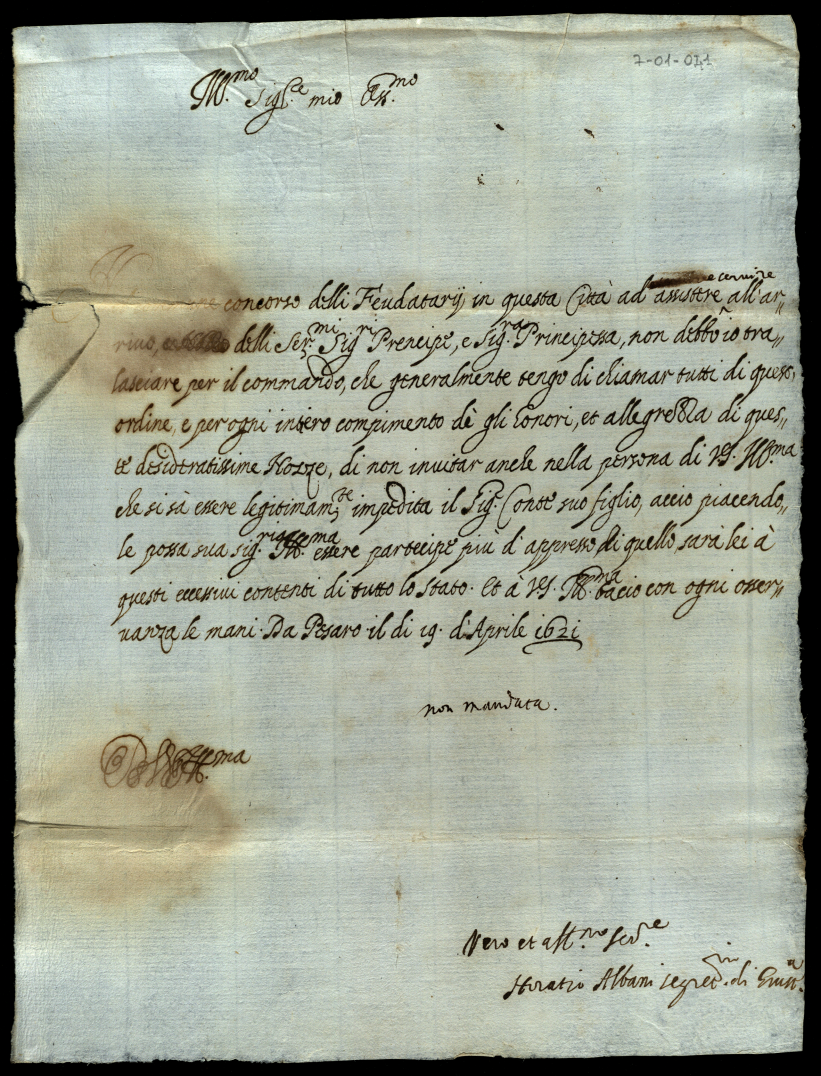 7-01-041
Ill.mo Sig.re mio Oss.mo
concorso delli Feudatarij in questa Città ad assistere e servire all'ar-
rivo, delli Ser.mi Sig.ri Prencipe, e Sig.ra Principessa, non debbo io tra-
lasciare per il commando, che generalmente tengo di chiamar tutti di quest'
ordine, e per ogni intero compimento de gli honori, et allegrezza di ques-
te desideratissime Nozze, di non invitar anche nella persona di VS. Ill.ma
che si sà essere legitimam.te impedita il Sig.r Conte suo figlio, accio piacendo-
le possa sua sig.ria Ill.ma essere partecipe più d'appresso di quello, sarà lei à
questi eccessivi contenti di tutto lo Stato. Et à VS. Ill.ma bacio con ogni osser-
vanza le mani. Da Pesaro il di 19. d'Aprile 1621
non mandata.
Di VS Ill.ma
Vero et aff.mo ser.re
Horatio Albani segret.rio di Giust.a